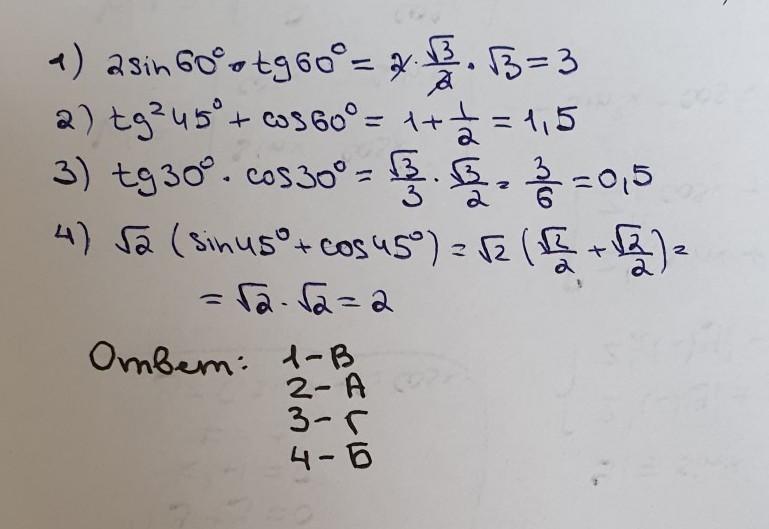 1) 2sin60°·tg60° = 2·√3/2·√3 = 3
2) tg²45° + cos60° = 1 + 1/2 = 1,5
3) tg30°·cos30° = √3/3·√3/2 = 3/6 = 0,5
4) √2 (sin45° + cos45°) = √2 (√2/2 + √2/2) =
= √2·√2 = 2
Ответ: 1 – В
2 – А
3 – Г
4 – Б